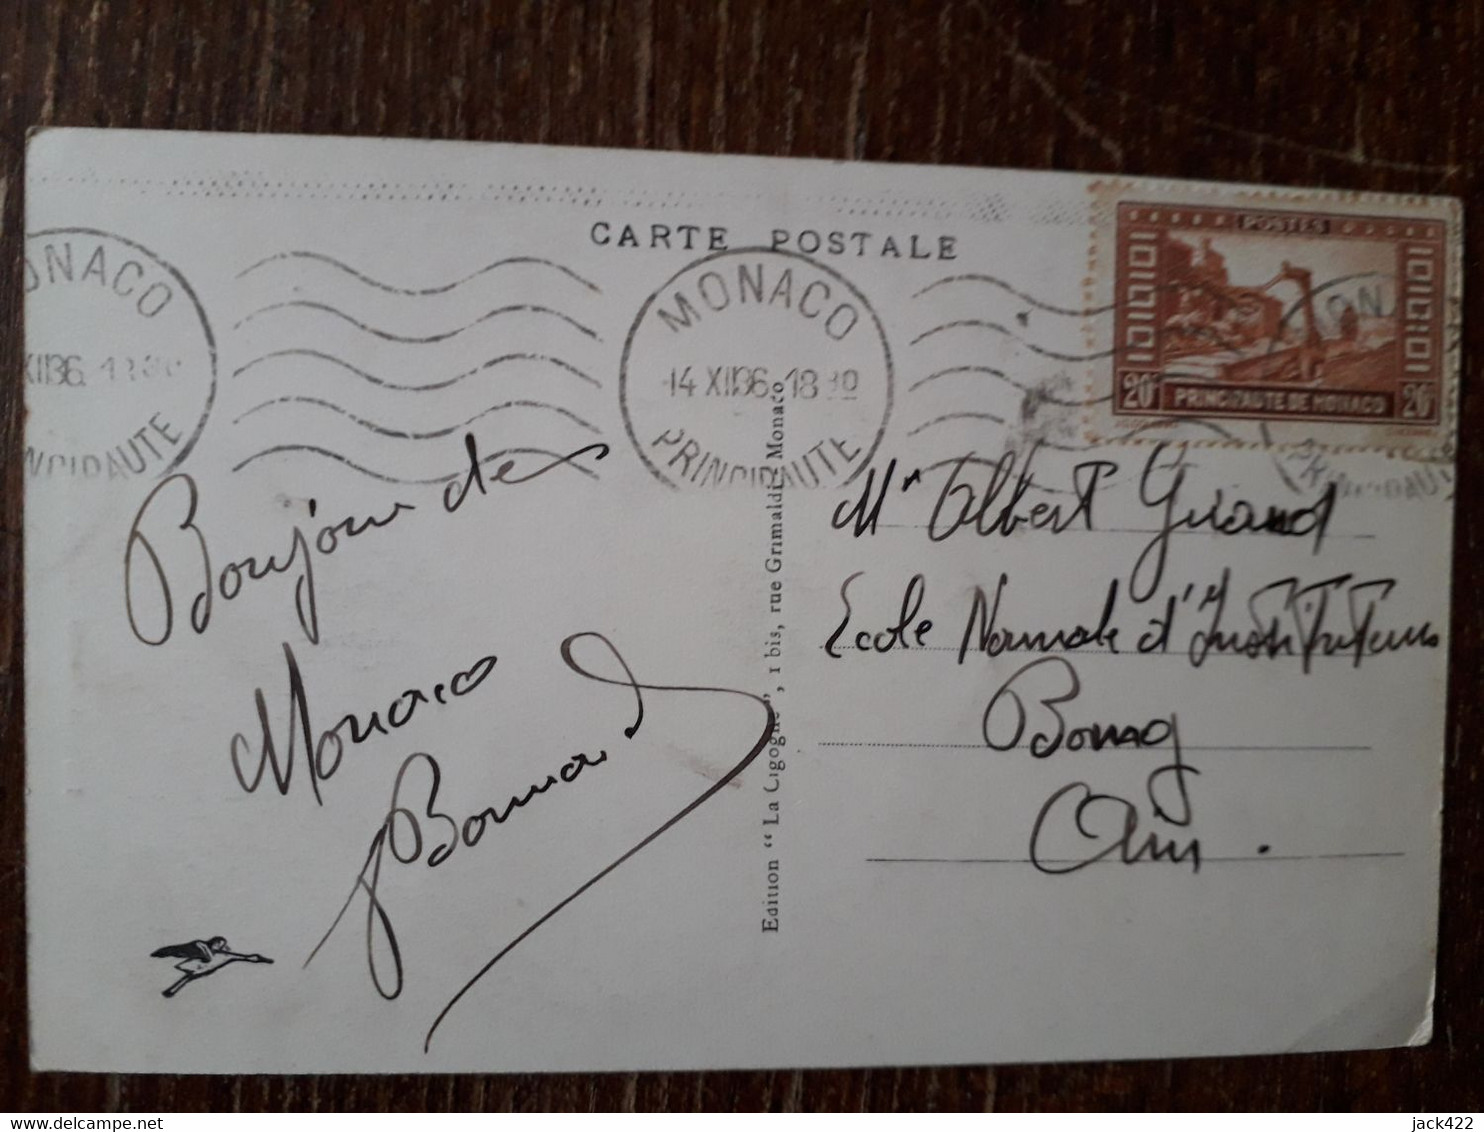 CARTE POSTALE
MONACO
XII36
PRINCIPAUTE
MONACO
14 XII36 18 30
PRINCIPAUTE
POSTES
20c PRINCIPAUTE DE MONACO 20c
Bonjour de
Monaco
Edition “ La Cigogne ”, 1 bis, rue Grimaldi, Monaco
Mr Albert Girand
Ecole Normale d'Instituteurs
Bourg
Ain.
jack422